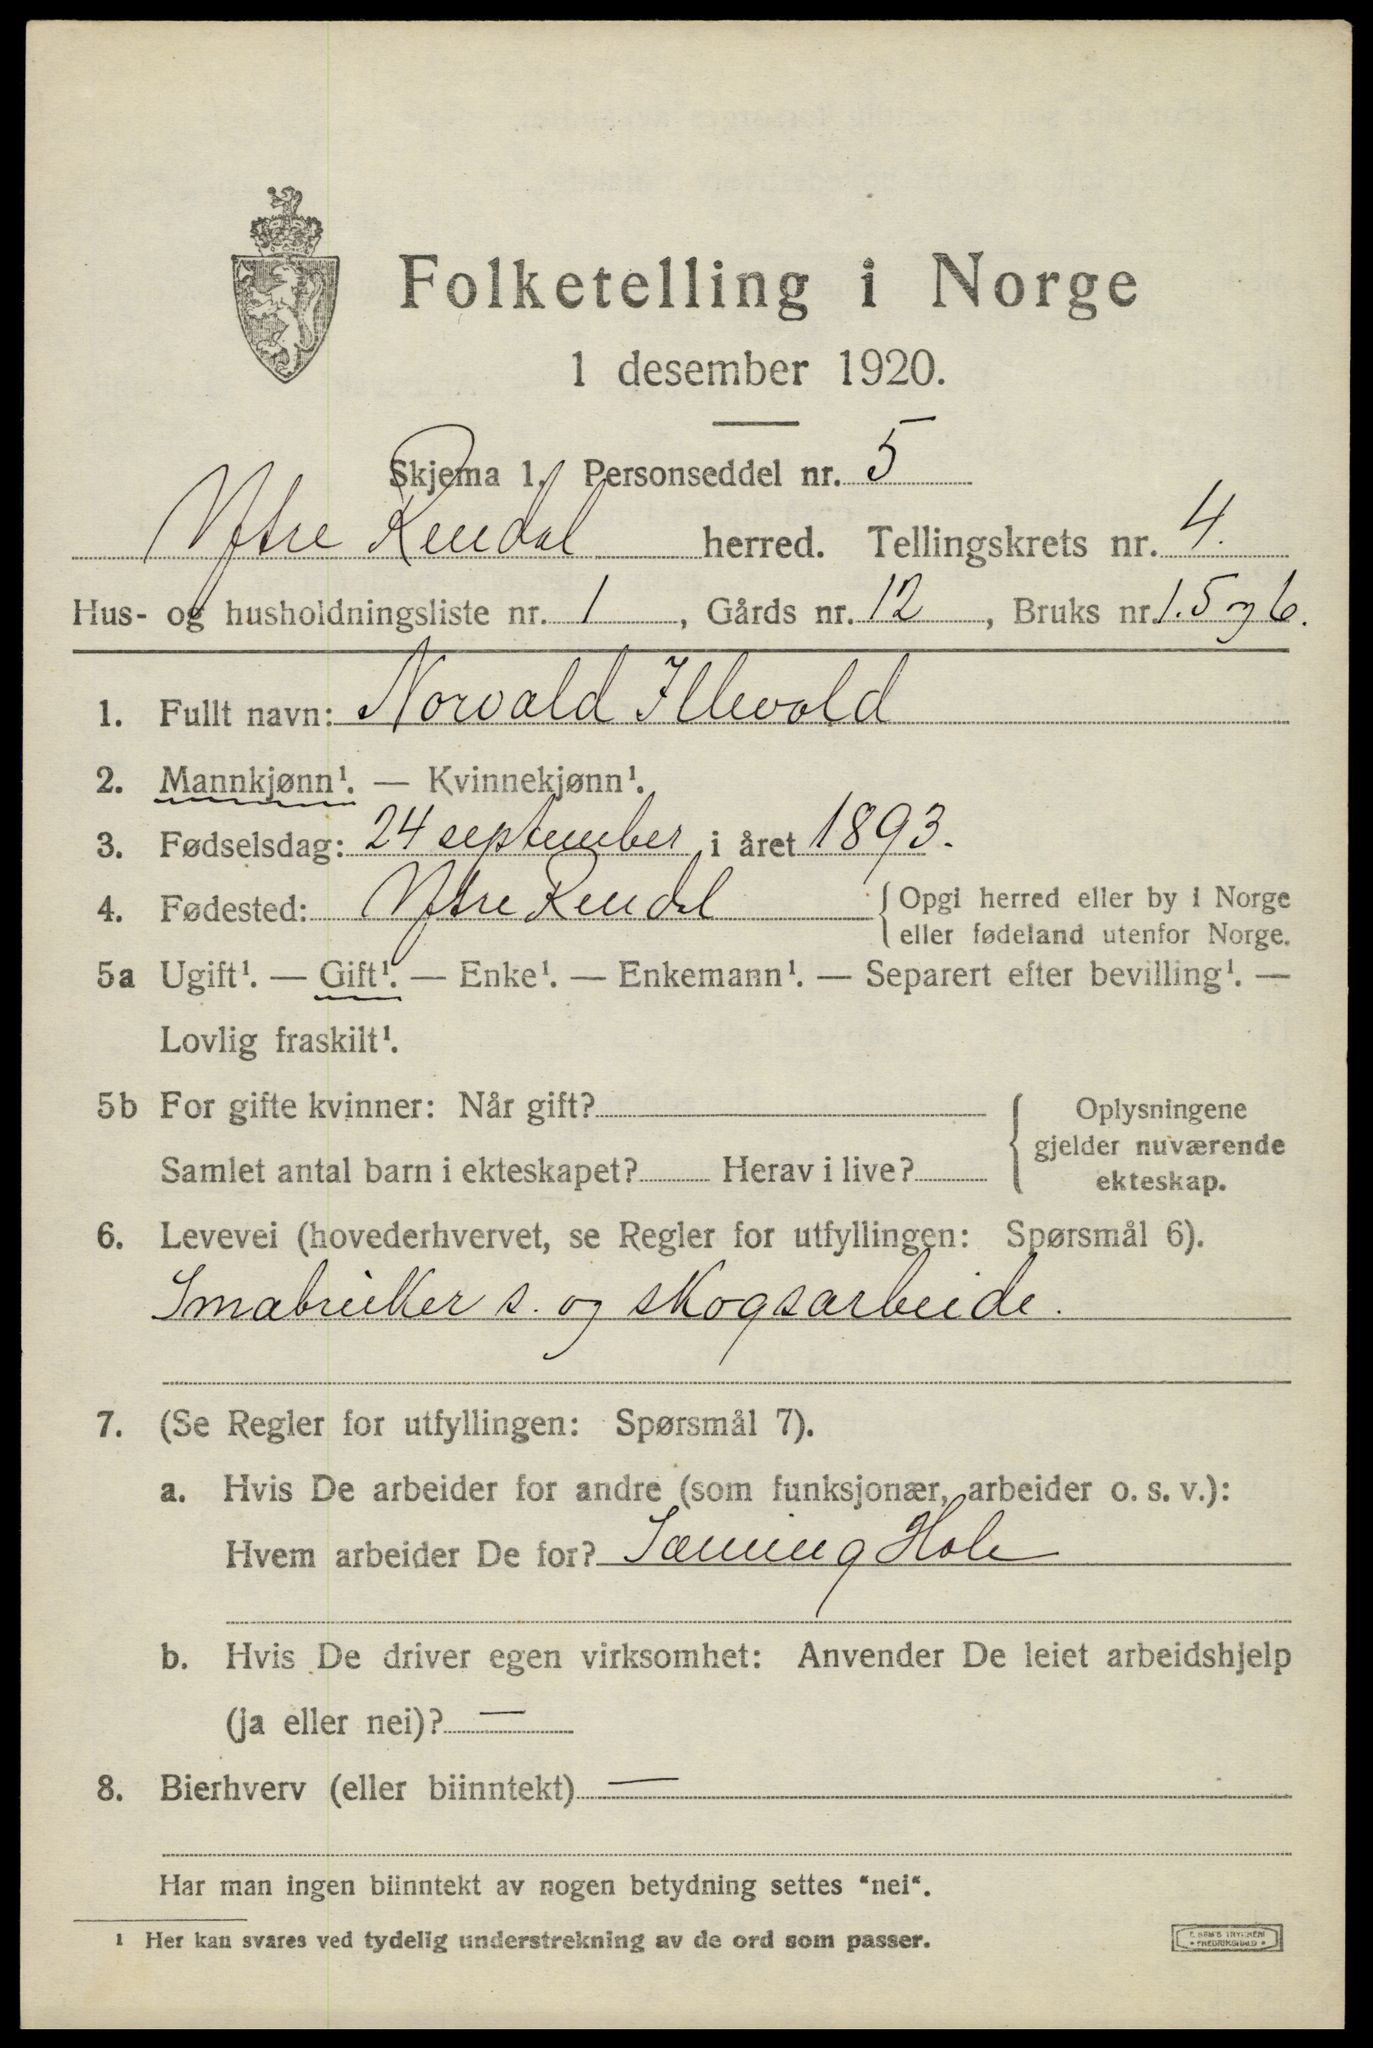 Folketelling i Norge
1 desember 1920.
Skjema 1. Personseddel nr. 5
Ytre Rendal herred. Tellingskrets nr. 4.
Hus- og husholdningsliste nr. 1, Gårds nr. 12, Bruks nr. 1.5 og 6.
1. Fullt navn: Norvald Illevold
2. Mannkjønn¹. — Kvinnekjønn¹.
3. Fødselsdag: 24 september i året 1893.
4. Fødested: Ytre Rendal {Opgi herred eller by i Norge
eller fødeland utenfor Norge.
5a Ugift¹. — Gift¹. — Enke¹. — Enkemann¹. — Separert efter bevilling¹. —
Lovlig fraskilt¹.
5b For gifte kvinner: Når gift?
Samlet antal barn i ekteskapet? Herav i live?
{Oplysningene
gjelder nuværende
ekteskap.
6. Levevei (hovederhvervet, se Regler for utfyllingen: Spørsmål 6).
Smabruker s. og skogsarbeide.
7. (Se Regler for utfyllingen: Spørsmål 7).
a. Hvis De arbeider for andre (som funksjonær, arbeider o. s. v.):
Hvem arbeider De for? Hole
b. Hvis De driver egen virksomhet: Anvender De leiet arbeidshjelp
(ja eller nei)? —
8. Bierhverv (eller biinntekt) —
Har man ingen biinntekt av nogen betydning settes "nei".
¹ Her kan svares ved tydelig understrekning av de ord som passer.